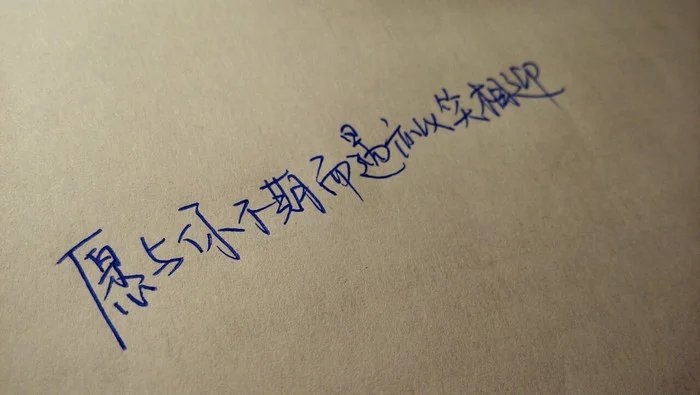 愿与你不期而遇亦以笑相迎